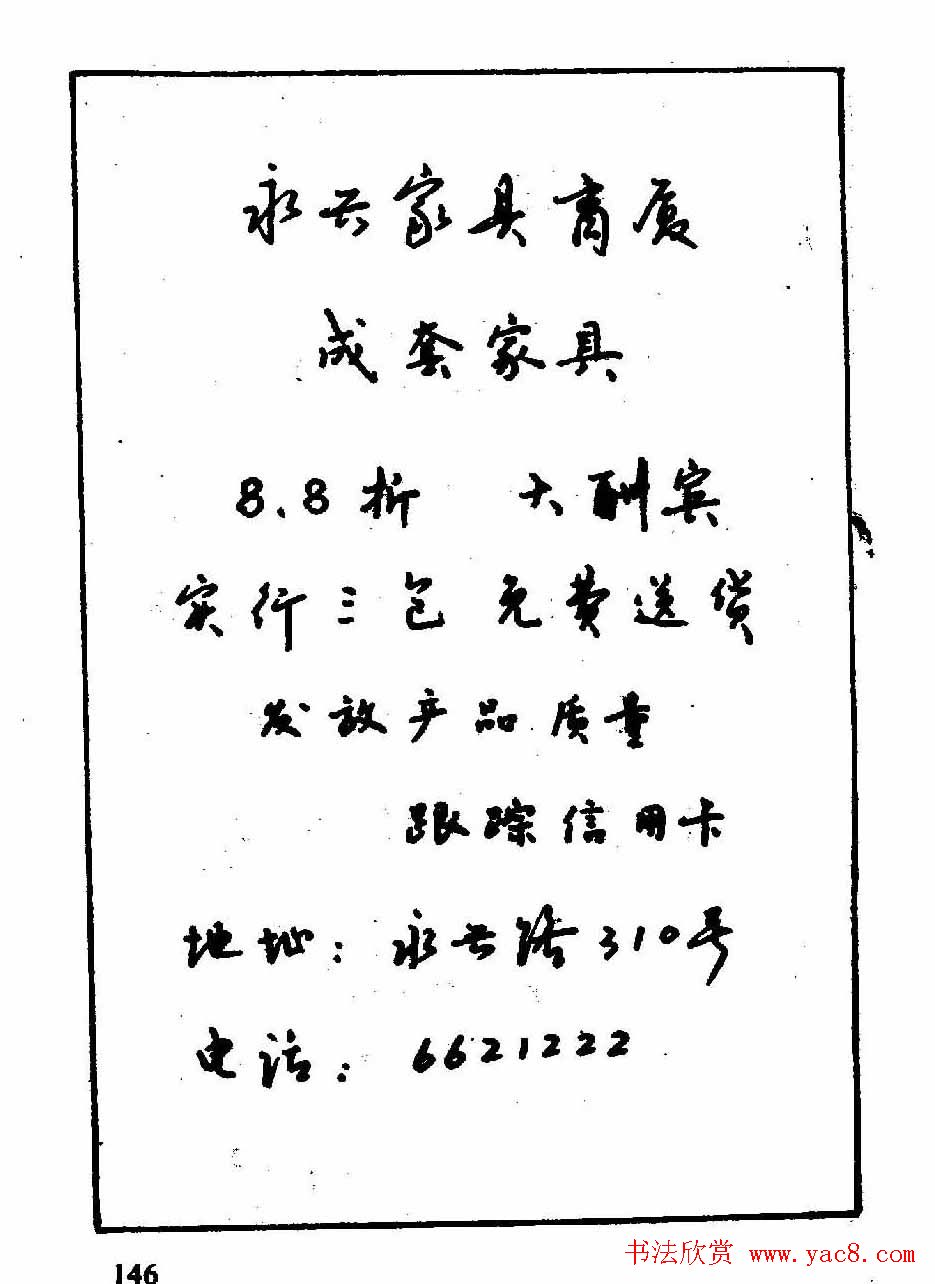 永兴家具商厦
成套家具
8.8折 大酬宾
实行三包 免费送货
发放产品质量
跟踪信用卡
地址：永兴路310号
电话：6621222
146
书法欣赏 www.yac8.com